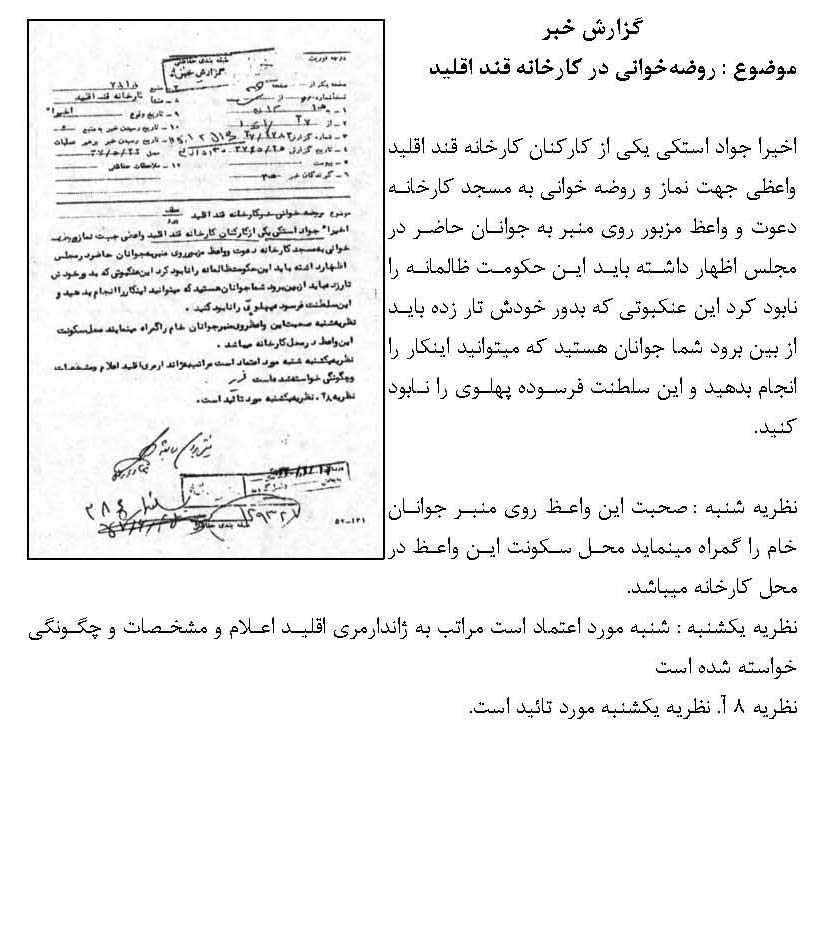 گزارش خبر
موضوع : روضه‌خوانی در کارخانه قند اقلید
اخیرا جواد استکی یکی از کارکنان کارخانه قند اقلید
واعظی جهت نماز و روضه خوانی به مسجد کارخانه
دعوت و واعظ مزبور روی منبر به جوانان حاضر در
مجلس اظهار داشته باید این حکومت ظالمانه را
نابود کرد این عنکبوتی که بدور خودش تار زده باید
از بین برود شما جوانان هستید که میتوانید اینکار را
انجام بدهید و این سلطنت فرسوده پهلوی را نابود
کنید.
نظریه شنبه : صحبت این واعظ روی منبر جوانان
خام را گمراه مینماید محل سکونت این واعظ در
محل کارخانه میباشد.
نظریه یکشنبه : شنبه مورد اعتماد است مراتب به ژاندارمری اقلید اعلام و مشخصات و چگونگی
خواسته شده است
نظریه ۸ آ. نظریه یکشنبه مورد تائید است.
درجه فوریت
طبقه بندی حفاظتی
گزارش خبر
۷ - منبع ۲۸۱۸
۸ - منشا کارخانه قند اقلید
۹ - تاریخ وقوع اخیرا"
۱۰ - تاریخ رسیدن خبر به منبع
۱۱ - تاریخ رسیدن خبر برهبر عملیات
۱۲ - ملاحظات حفاظتی
۵ - پیوست
۶ - گیرندگان خبر
موضوع روضه خوانی در کارخانه قند اقلید
اخیرا" جواد استکی یکی از کارکنان کارخانه قند اقلید واعظی جهت نماز و روضه
خوانی به مسجد کارخانه دعوت و واعظ مزبور روی منبر به جوانان حاضر در مجلس
اظهار داشته باید این حکومت ظالمانه را نابود کرد این عنکبوتی که بدور خودش
تار زده باید از بین برود شما جوانان هستید که میتوانید اینکار را انجام بدهید و
این سلطنت فرسوده پهلوی را نابود کنید .
نظریه شنبه صحبت این واعظ روی منبر جوانان خام را گمراه مینماید محل سکونت
این واعظ در محل کارخانه میباشد .
نظریه یکشنبه شنبه مورد اعتماد است مراتب به ژاندارمری اقلید اعلام و مشخصات
و چگونگی خواسته شده است
نظریه ۸آ . نظریه یکشنبه مورد تائید است .
طبقه بندی حفاظتی
۵۲-۱۲۱